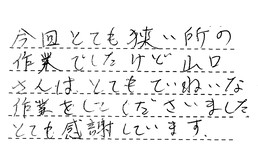 今回とても狭い所の
作業でしたけど山口
さんはとてもていねいな
作業をしてくださいました
とても感謝しています.